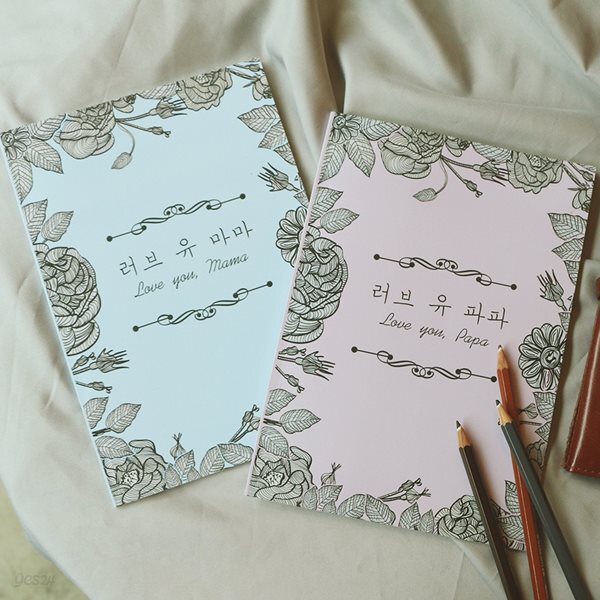 러브 유 마마
Love you, Mama
러브 유 파파
Love you, Papa
yes24